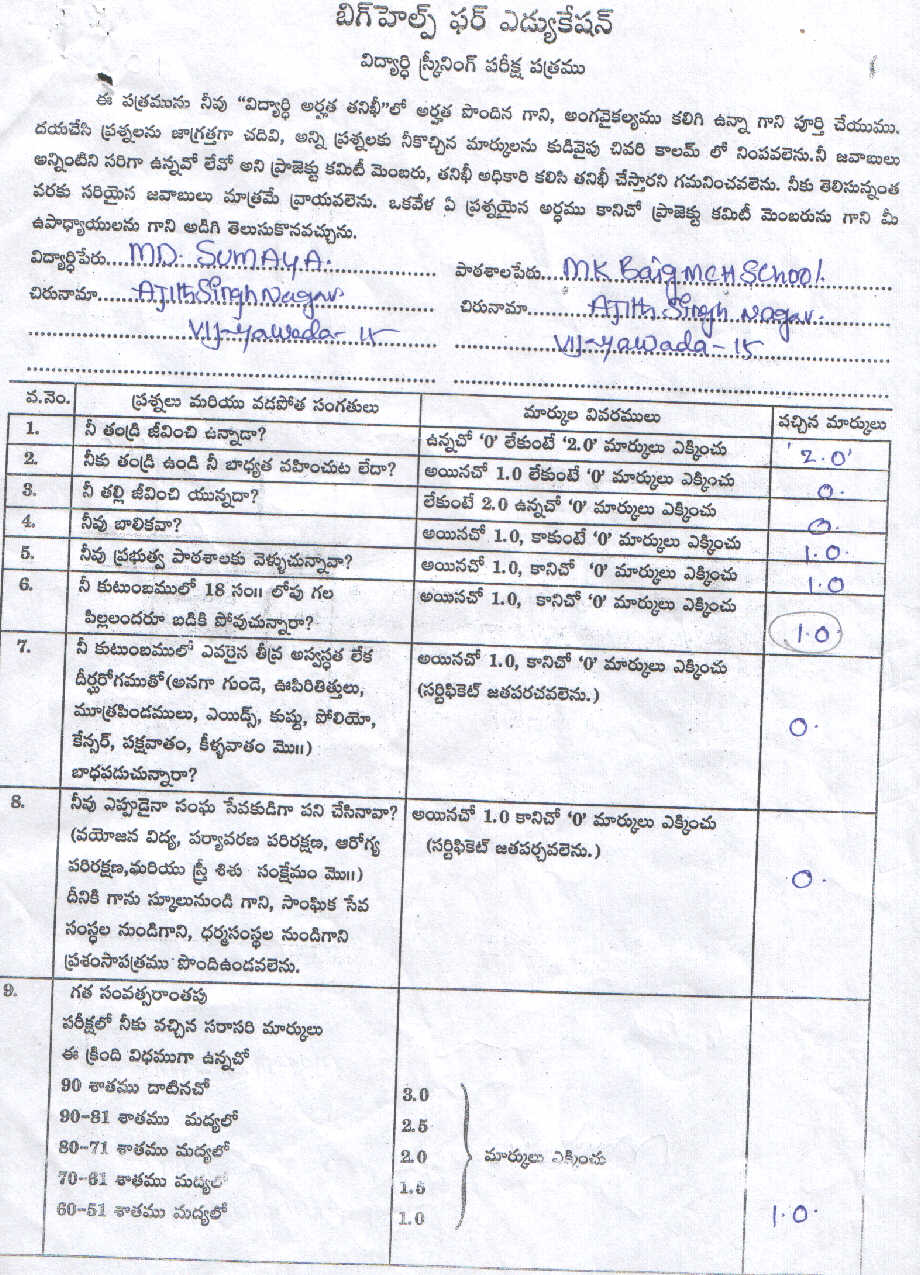 బిగ్‌హెల్ప్ ఫర్ ఎడ్యుకేషన్
విద్యార్ధి స్క్రీనింగ్ పరీక్ష పత్రము
ఈ పత్రమును నీవు "విద్యార్ధి అర్హత తనిఖీ"లో అర్హత పొందిన గాని, అంగవైకల్యము కలిగి ఉన్నా గాని పూర్తి చేయుము.
దయచేసి ప్రశ్నలను జాగ్రత్తగా చదివి, అన్ని ప్రశ్నలకు నీకొచ్చిన మార్కులను కుడివైపు చివరి కాలమ్ లో నింపవలెను.నీ జవాబులు
అన్నింటిని సరిగా ఉన్నవో లేవో అని ప్రాజెక్టు కమిటీ మెంబరు, తనిఖీ అధికారి కలిసి తనిఖీ చేస్తారని గమనించవలెను. నీకు తెలిసున్నంత
వరకు సరియైన జవాబులు మాత్రమే వ్రాయవలెను. ఒకవేళ ఏ ప్రశ్నయైన అర్ధము కానిచో ప్రాజెక్టు కమిటీ మెంబరును గాని మీ
ఉపాధ్యాయులను గాని అడిగి తెలుసుకొనవచ్చును.
విద్యార్ధిపేరు....MD. SUMAYA. పాఠశాలపేరు....MK Baig MCH School.
చిరునామా....AJith Singh Nagar చిరునామా....AJith Singh Nagar.
VIJ-yawada-15 VIJ-yawada-15
వ.నెం. ప్రశ్నలు మరియు వడపోత సంగతులు మార్కుల వివరములు వచ్చిన మార్కులు
1. నీ తండ్రి జీవించి ఉన్నాడా? ఉన్నచో '0' లేకుంటే '2.0' మార్కులు ఎక్కించు '2.0'
2. నీకు తండ్రి ఉండి నీ బాధ్యత వహించుట లేదా? అయినచో 1.0 లేకుంటే '0' మార్కులు ఎక్కించు 0.
3. నీ తల్లి జీవించి యున్నదా? లేకుంటే 2.0 ఉన్నచో '0' మార్కులు ఎక్కించు 0.
4. నీవు బాలికవా? అయినచో 1.0, కాకుంటే '0' మార్కులు ఎక్కించు 1.0.
5. నీవు ప్రభుత్వ పాఠశాలకు వెళ్ళుచున్నావా? అయినచో 1.0, కానిచో '0' మార్కులు ఎక్కించు 1.0
6. నీ కుటుంబములో 18 సం॥ లోపు గల అయినచో 1.0, కానిచో '0' మార్కులు ఎక్కించు
పిల్లలందరూ బడికి పోవుచున్నారా? 1.0
7. నీ కుటుంబములో ఎవరైన తీవ్ర అస్వస్థత లేక అయినచో 1.0, కానిచో '0' మార్కులు ఎక్కించు
దీర్ఘరోగముతో(అనగా గుండె, ఊపిరితిత్తులు, (సర్టిఫికెట్ జతపరచవలెను.)
మూత్రపిండములు, ఎయిడ్స్, కుష్టు, పోలియో, 0.
కేన్సర్, పక్షవాతం, కీళ్ళవాతం మొ॥)
బాధపడుచున్నారా?
8. నీవు ఎప్పుడైనా సంఘ సేవకుడిగా పని చేసినావా? అయినచో 1.0 కానిచో '0' మార్కులు ఎక్కించు
(వయోజన విద్య, పర్యావరణ పరిరక్షణ, ఆరోగ్య (సర్టిఫికెట్ జతపర్చవలెను.)
పరిరక్షణ,మరియు స్త్రీ శిశు సంక్షేమం మొ॥) 0.
దీనికి గాను స్కూలునుండి గాని, సాంఘిక సేవ
సంస్థల నుండిగాని, ధర్మసంస్థల నుండిగాని
ప్రశంసాపత్రము పొందిఉండవలెను.
9. గత సంవత్సరాంతపు
పరీక్షలో నీకు వచ్చిన సరాసరి మార్కులు
ఈ క్రింది విధముగా ఉన్నచో
90 శాతము దాటినచో 3.0
90-81 శాతము మద్యలో 2.5
80-71 శాతము మద్యలో 2.0 మార్కులు ఎక్కించు
70-61 శాతము మద్యలో 1.5
60-51 శాతము మద్యలో 1.0 1.0.